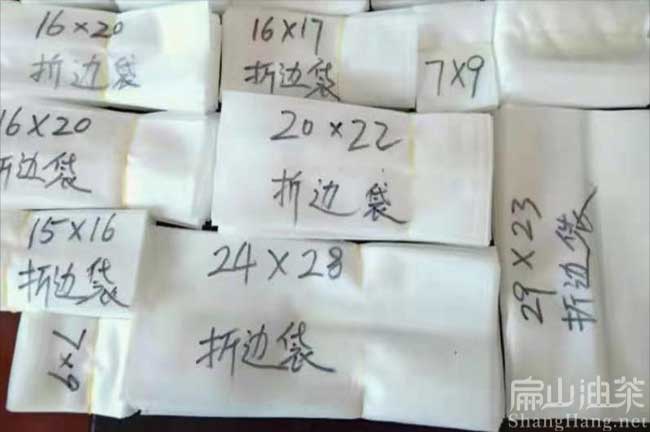 16×20
折边袋
16×17
折边袋
7×9
16×20
折边袋
20×22
折边袋
15×16
折边袋
24×28
折边袋
29×23
折边袋
7×9
扁山油茶
ShangHang.net